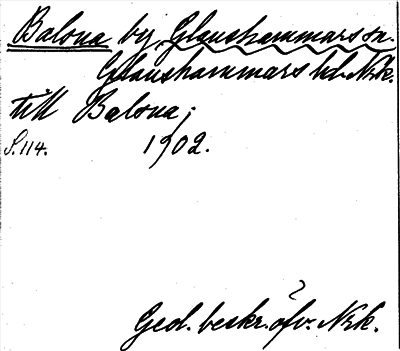 Balsna by, Glanshammars sn.
Glanshammars hd. Nrk.
till Balsna;
S. 114. 1902.
Ged. beskr. öfv. Nrk.